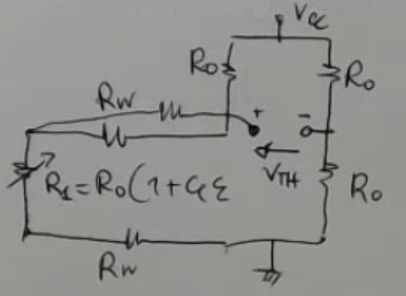 Vcc
Ro
Ro
Rw
+
-
VTH
R1=Ro(1+Gε
Ro
Rw